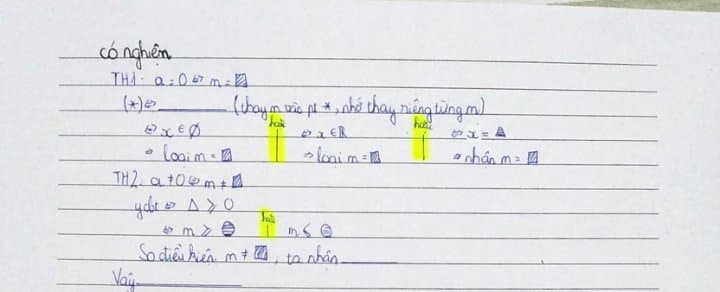 có nghiệm
TH1. a = 0 ⇔ m = ▨
(*) ⇔ ________ (thay m vào pt *, nhớ thay riêng từng m)
⇔ x ∈ ∅ hoặc ⇔ x ∈ ℝ hoặc ⇔ x = ▲
⇒ loại m = ▨ | ⇒ loại m = ▨ | ⇒ nhận m = ▨
TH2. a ≠ 0 ⇔ m ≠ ▨
ycbt ⇔ Δ ≥ 0
⇔ m ≥ ◍ hoặc m ≤ ◍
So điều kiện m ≠ ▨, ta nhận ________
Vậy ________